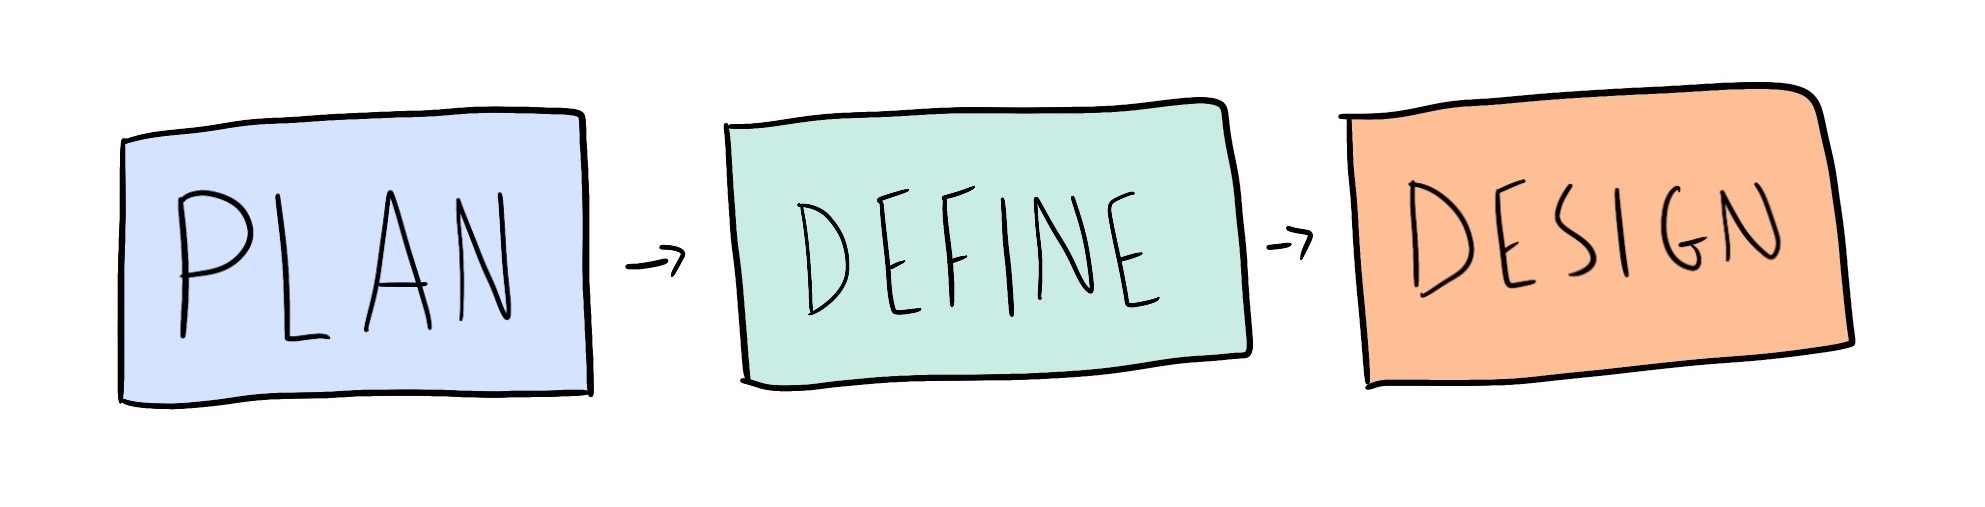 PLAN → DEFINE → DESIGN